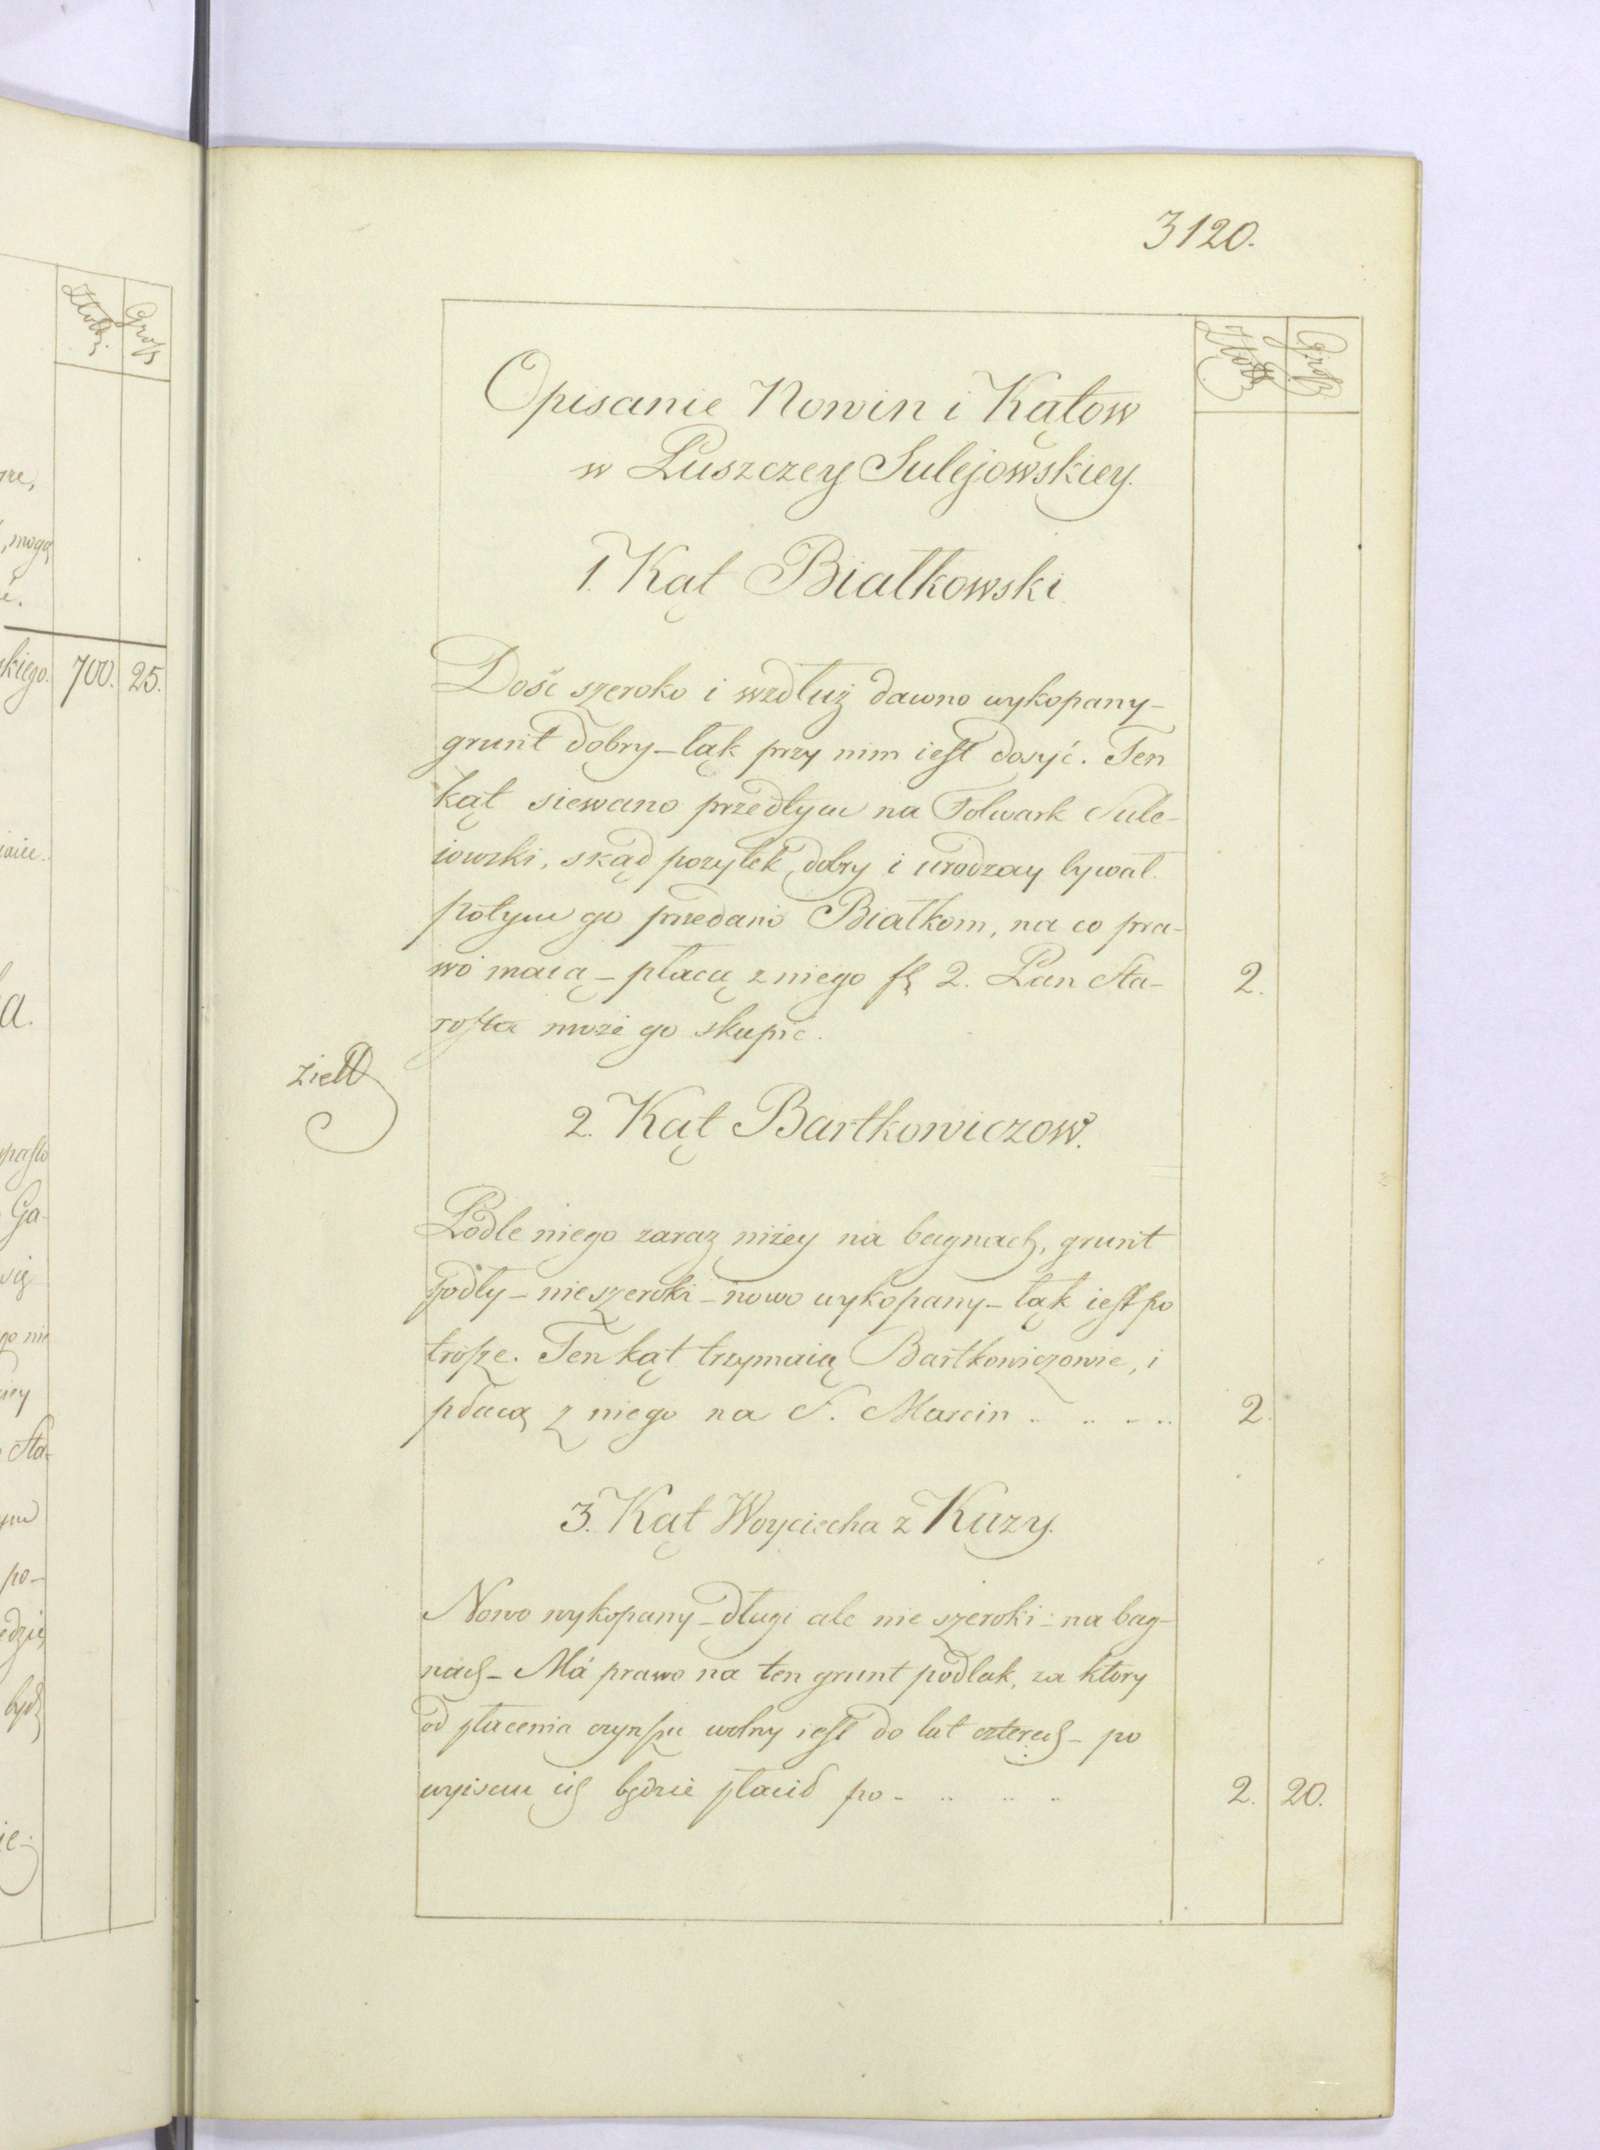 3120.
Złote Grosz
Opisanie Nowin i Kątow
w Puszczey Sulejowskiey.
1. Kąt Białkowski.
Dość szeroko i wzdłuż dawno wykopany_
grunt dobry_łąk przy nim iest dosyć. Ten
kąt siewano przedtym na Folwark Sule-
iowski, skąd pożytek dobry i urodzay bywał.
potym go przedano Białkom, na co pra-
wo maią_ płacą z niego fl 2. Pan Sta-
rosta może go skupić.
2.
2. Kąt Bartkowiczow.
Podle niego zaraz niżey na bagnach, grunt
podły_ nieszeroki_nowo wykopany_ łąk iest po
trosze. Ten kąt trzymaią Bartkowiczowie, i
płacą z niego na S. Marcin .. .. .. ..
2.
3. Kąt Woyciecha z Kuzy.
Nowo wykopany_długi ale nie szeroki_ na bag-
nach_ Má prawo na ten grunt podlak, za ktory
od płacenia czynszu wolny iest do lat czterech_ po
wyiściu ich będzie płacił po_ .. .. ..
2. 20.
Złote Grosz
mogą
skiego. 700. 25.
Ga-
się
Sta-
po-